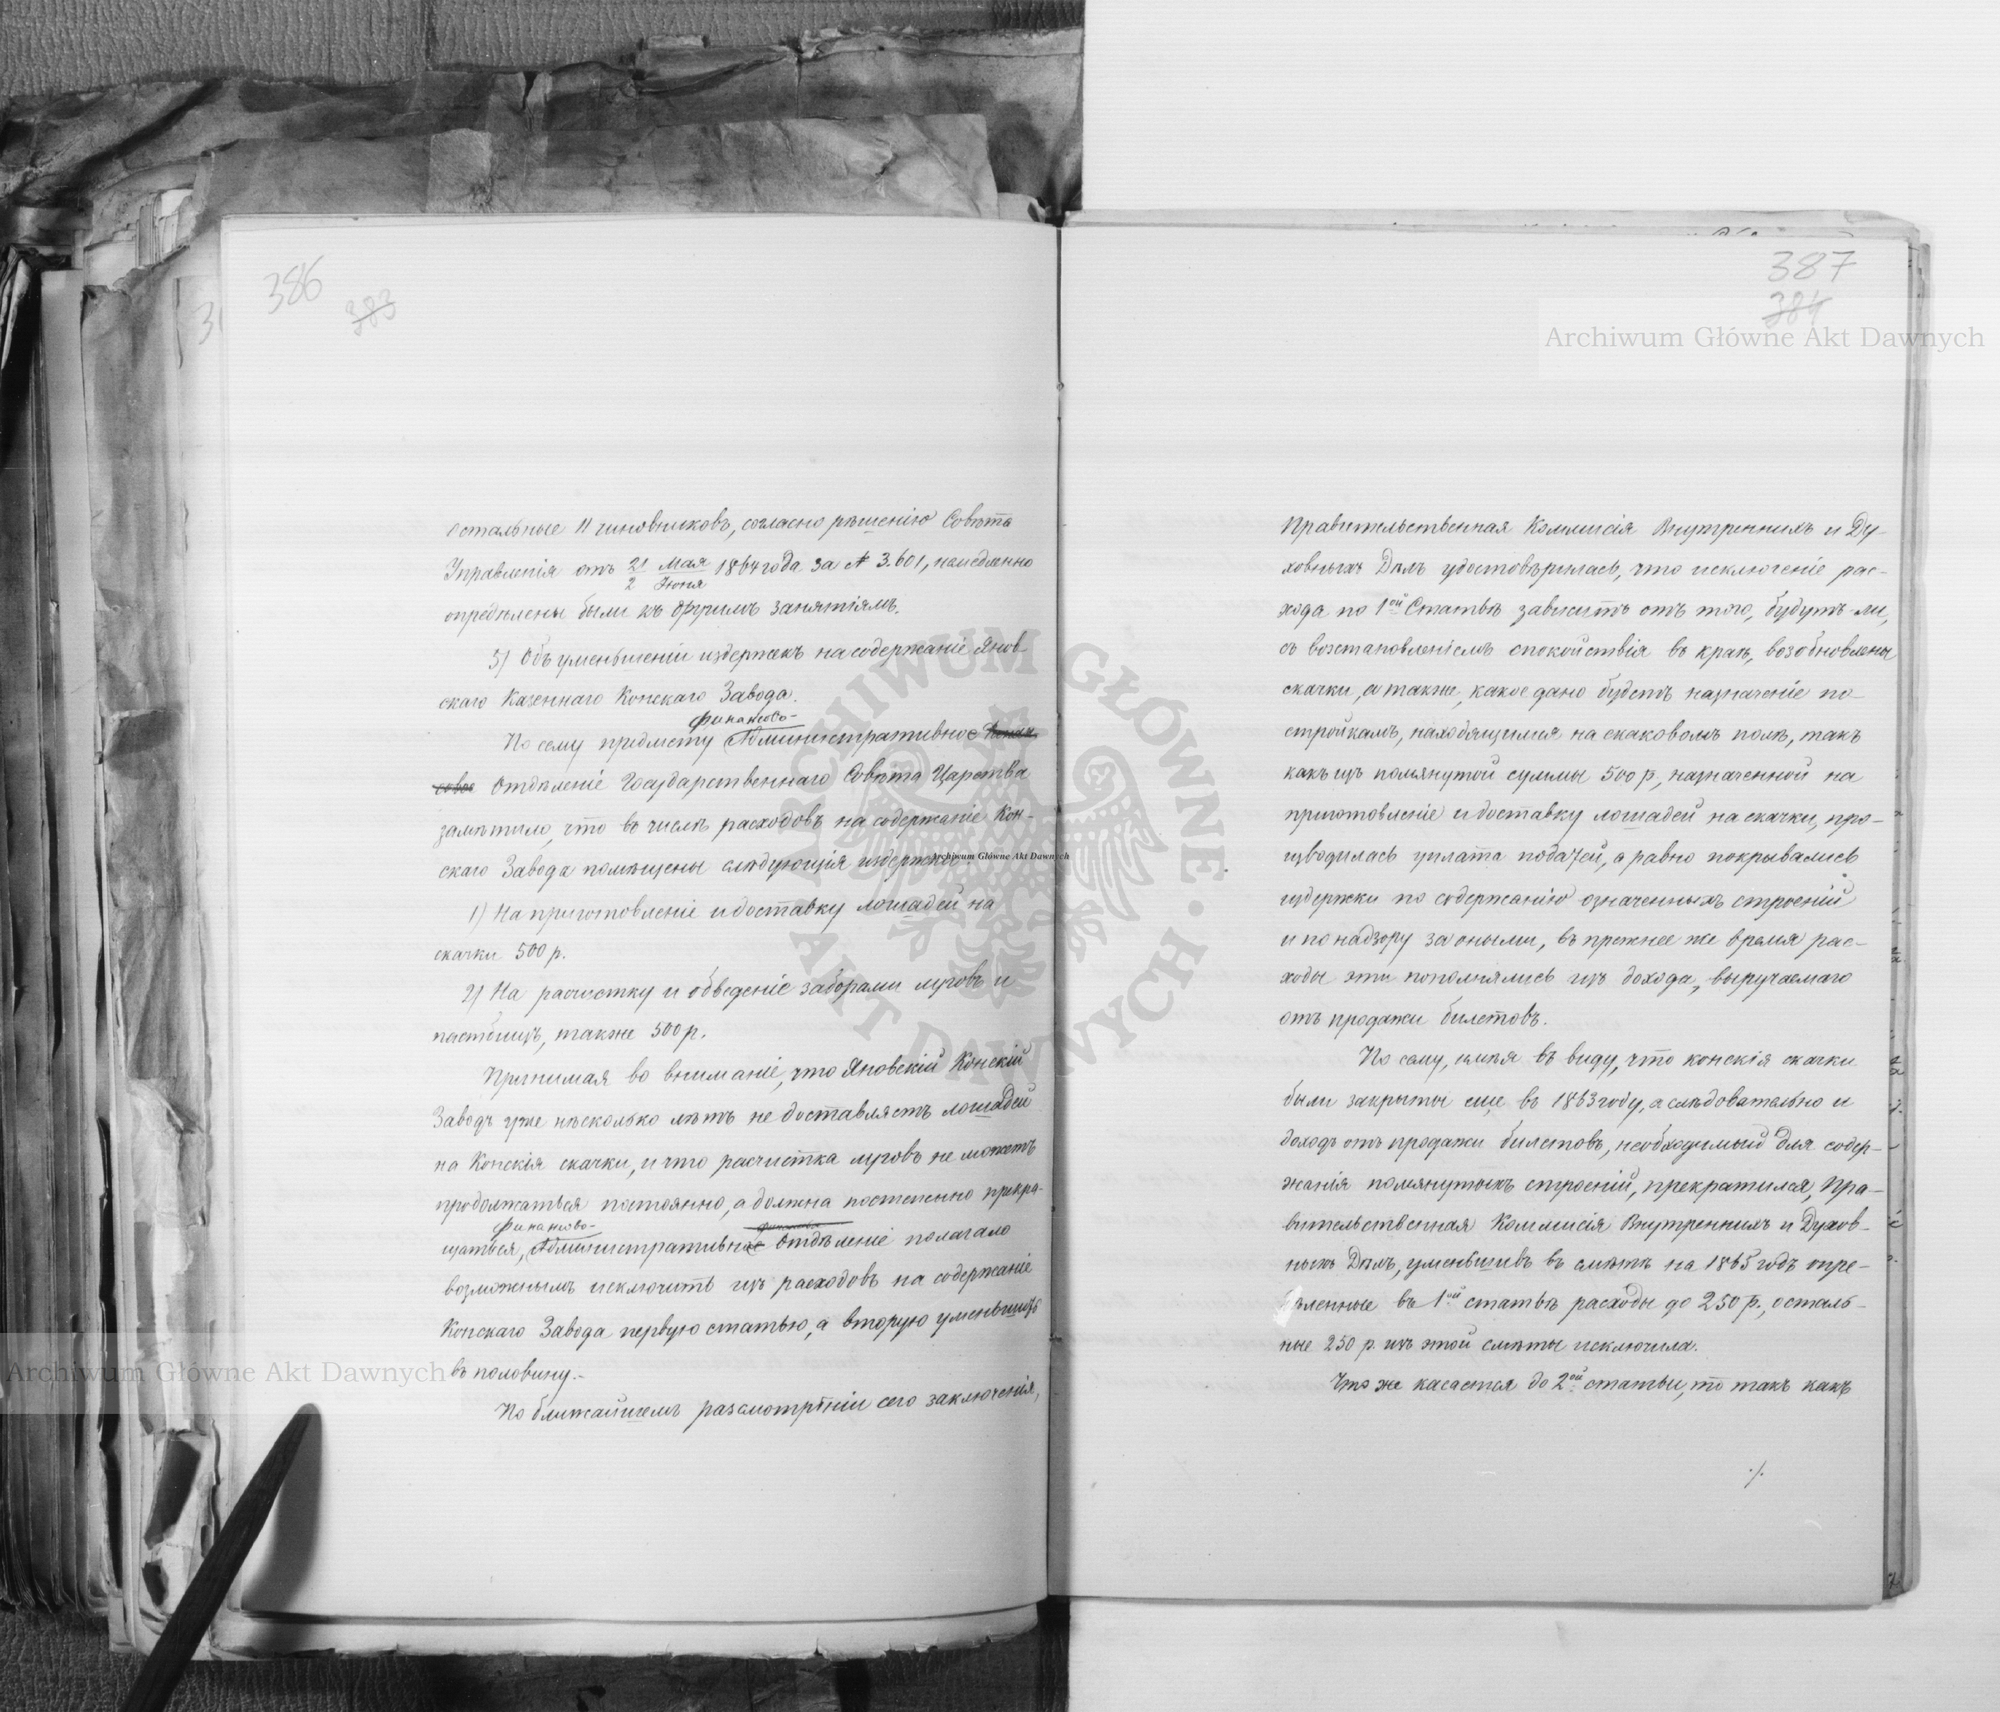 386
383
остальные 11 чиновниковъ, согласно рѣшенію Совѣта
Управленія отъ 21 Мая / 2 Іюня 1864 года за № 3.601, немедленно
опредѣлены были къ другимъ занятіямъ.
5) Объ уменьшеніи издержекъ на содержаніе Янов
скаго Казеннаго Конскаго Завода.
финансово-
По сему предмету Административное
совое Отдѣленіе Государственнаго Совѣта Царства
замѣтило, что въ числѣ расходовъ на содержаніе Кон-
скаго Завода помѣщены слѣдующія издержки:
1) На приготовленіе и доставку лошадей на
скачки 500 р.
2) На расчистку и обведеніе заборами луговъ и
пастбищъ, также 500 р.
Принимая во вниманіе, что Яновскій Конскій
Заводъ уже нѣсколько лѣтъ не доставляетъ лошадей
на Конскія скачки, и что расчистка луговъ не можетъ
продолжаться постоянно, а должна постепенно прекра-
финансово- финансово
щаться, Административное Отдѣленіе полагало
возможнымъ исключить изъ расходовъ на содержаніе
Конскаго Завода первую статью, а вторую уменьшить
въ половину.-
По ближайшемъ разсмотрѣніи сего заключенія,
387
384
Правительственная Коммисія Внутреннихъ и Ду-
ховныхъ Дѣлъ удостовѣрилась, что исключеніе рас-
хода по 1ой Статьѣ зависитъ отъ того, будутъ-ли,
съ возстановленіемъ спокойствія въ краѣ, возобновлены
скачки, а также, какое дано будетъ назначеніе по-
стройкамъ, находящимся на скаковомъ полѣ, такъ
какъ изъ помянутой суммы 500 р, назначенной на
приготовленіе и доставку лошадей на скачки, про-
изводилась уплата податей, а равно покрывались
издержки по содержанію означенныхъ строеній
и по надзору за оными, въ прежнее же время рас-
ходы эти пополнялись изъ дохода, выручаемаго
отъ продажи билетовъ.
По сему, имѣя въ виду, что конскія скачки
были закрыты еще въ 1863 году, а слѣдовательно и
доходъ отъ продажи билетовъ, необходимый для содер-
жанія помянутыхъ строеній, прекратился, Пра-
вительственная Коммисія Внутреннихъ и Духов-
ныхъ Дѣлъ, уменьшивъ въ смѣтѣ на 1865 годъ опре-
дѣленные въ 1ой статьѣ расходы до 250 р., осталь-
ные 250 р. изъ этой смѣты исключила.
Что же касается до 2ой статьи, то такъ какъ
./.
Archiwum Główne Akt Dawnych
Archiwum Główne Akt Dawnych
Archiwum Główne Akt Dawnych
ARCHIWUM GŁÓWNE • AKT DAWNYCH •